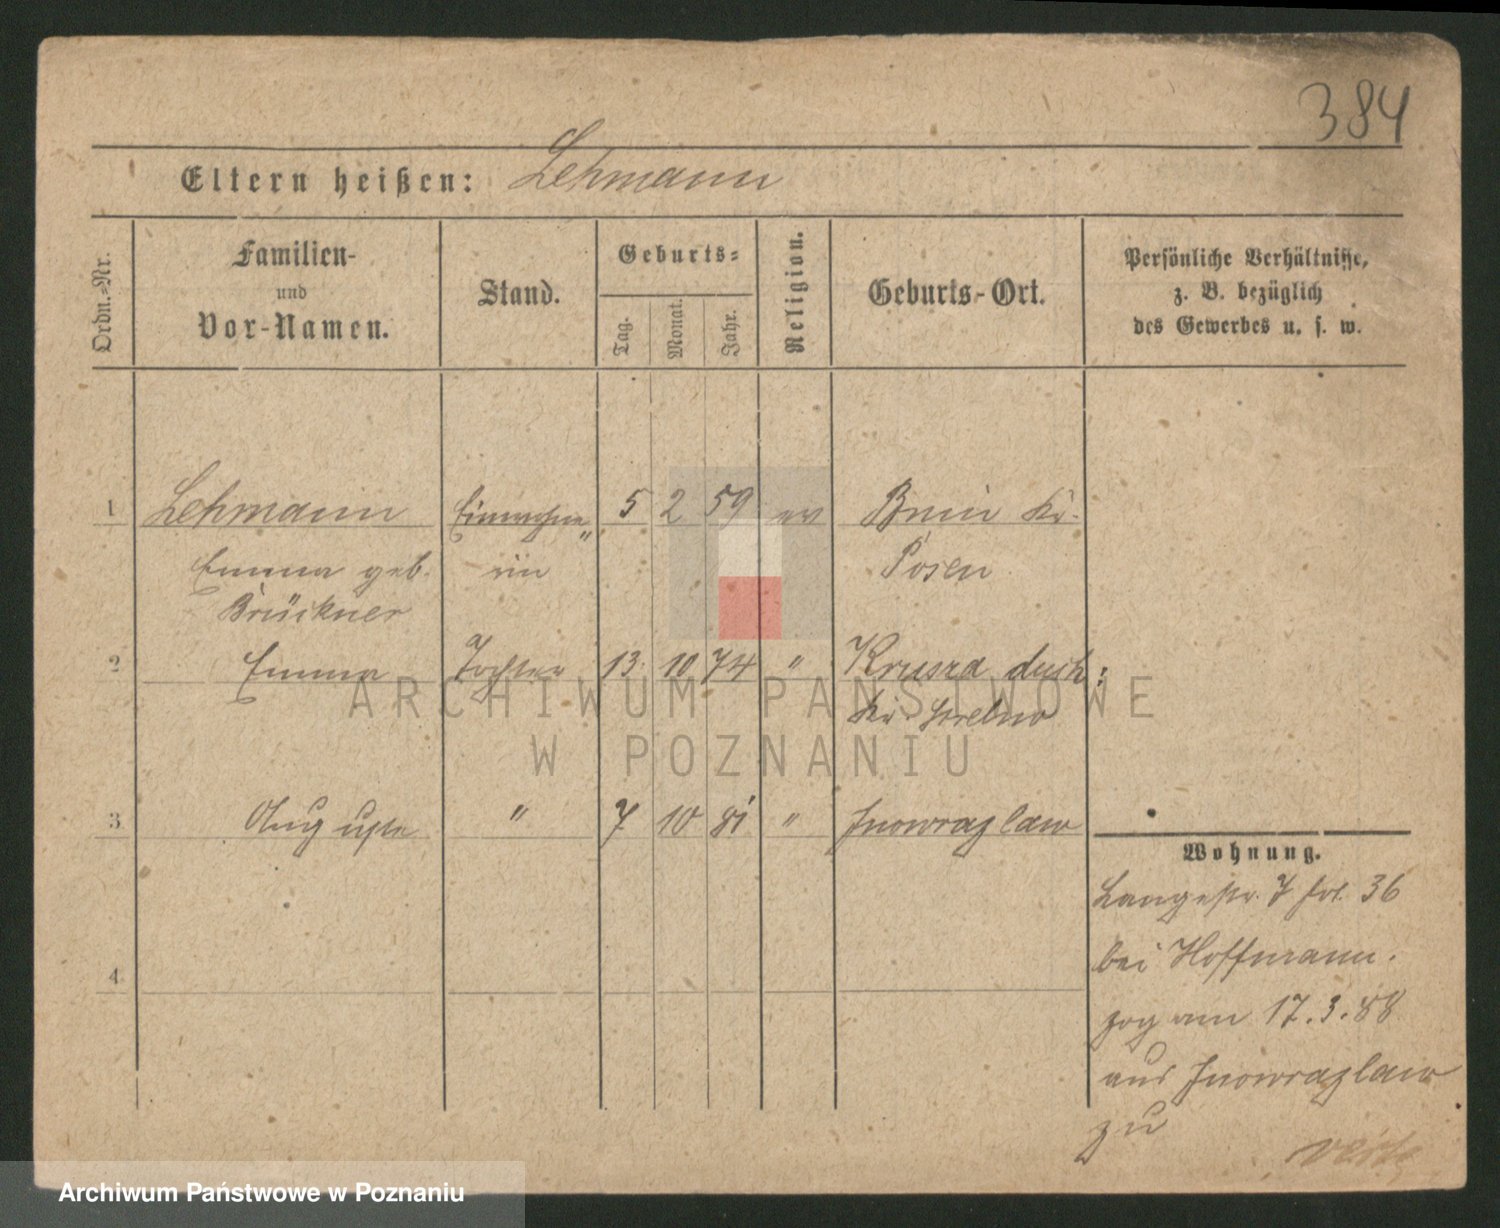 384
Eltern heißen: Lehmann
Ordn.-Nr.
Familien-
und
Vor-Namen.
Stand.
Geburts-
Tag.
Monat.
Jahr.
Religion.
Geburts-Ort.
Persönliche Verhältnisse,
z. B. bezüglich
des Gewerbes u. s. w.
1 Lehmann Einwohne„ 5 2 59 ev Bnin Kr.
Emma geb. rin Posen
Brückner
2 Emma Tochter 13. 10 74 " Krusza duch:
Kr. Strelno
3 Auguste " 7 10 81 " Inowrazlaw
4
Wohnung.
Langestr. 7 36
bei Hoffmann.
zog am 17.3.88
aus Inowrazlaw
zu
ARCHIWUM PAŃSTWOWE
W POZNANIU
Archiwum Państwowe w Poznaniu